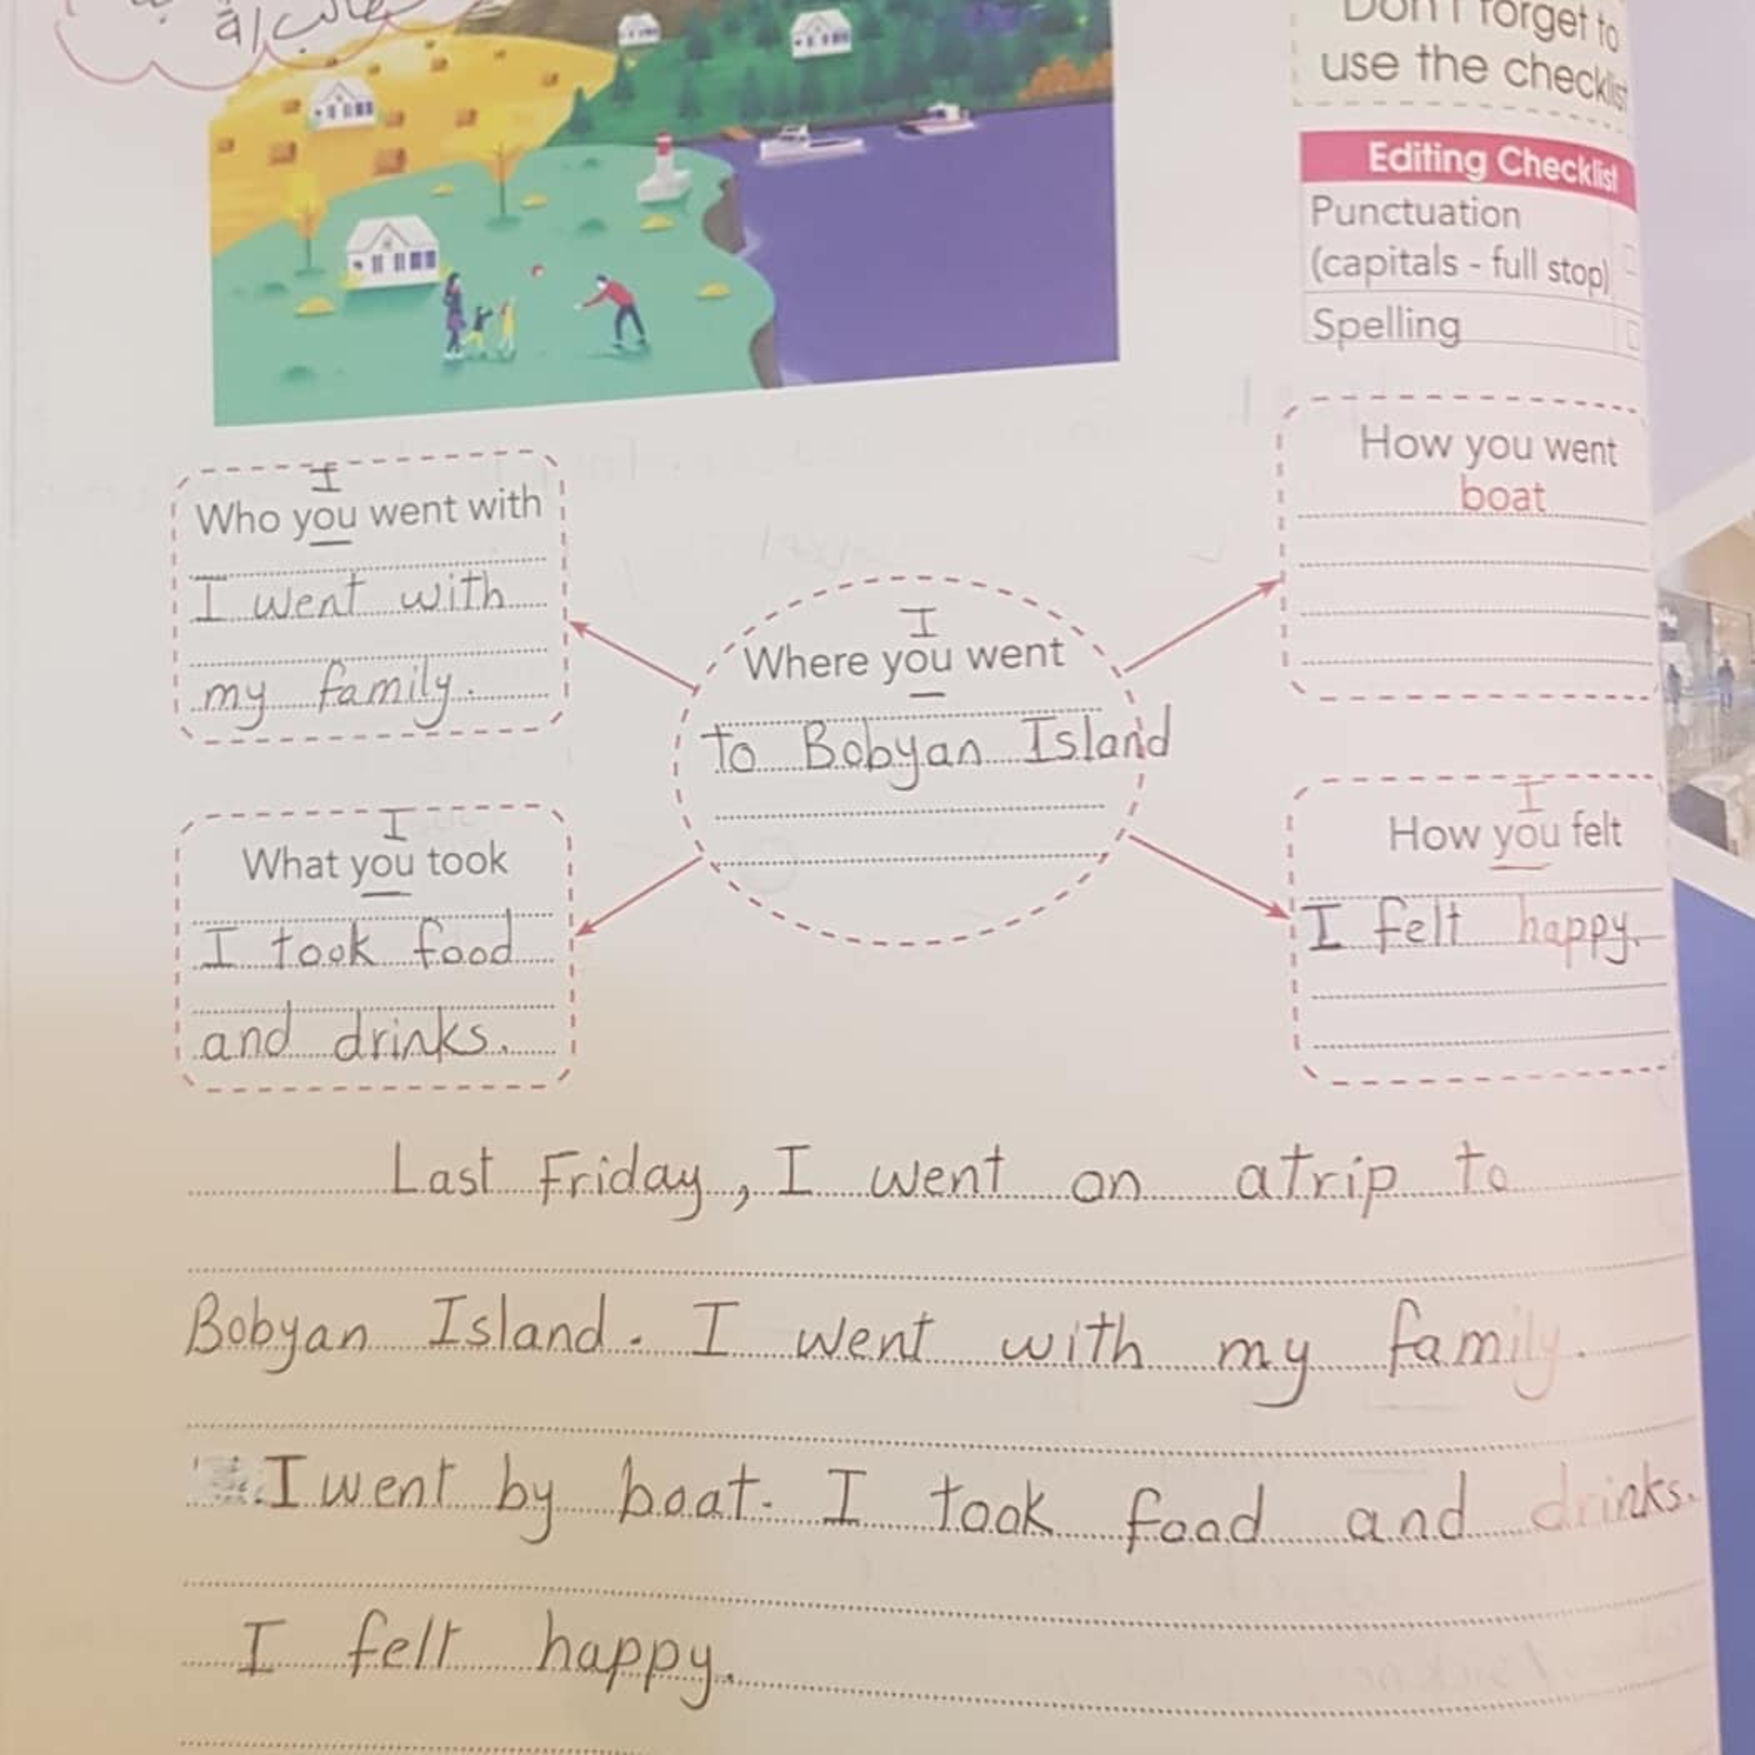 Don't forget to
use the checklist
Editing Checklist
Punctuation
(capitals - full stop)
Spelling
I
Who you went with
I went with
my family.
I
Where you went
to Bobyan Island
How you went
boat
I
What you took
I took food
and drinks.
I
How you felt
I felt happy.
Last Friday, I went on atrip to
Bobyan Island. I went with my family.
I went by boat. I took food and drinks.
I felt happy.